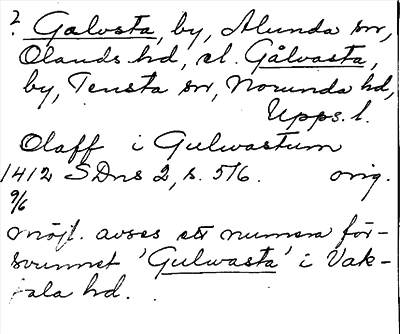 ? Galvsta, by, Alunda sn,
Olands hd, el. Gålvasta,
by, Tensta sn, Norunda hd,
Upps. l.
Olaff i Gulwastum
1412 SDns 2, s. 516. orig.
9/6
möjl. avses ett numera för-
svunnet 'Gulwasta' i Vak-
sala hd.